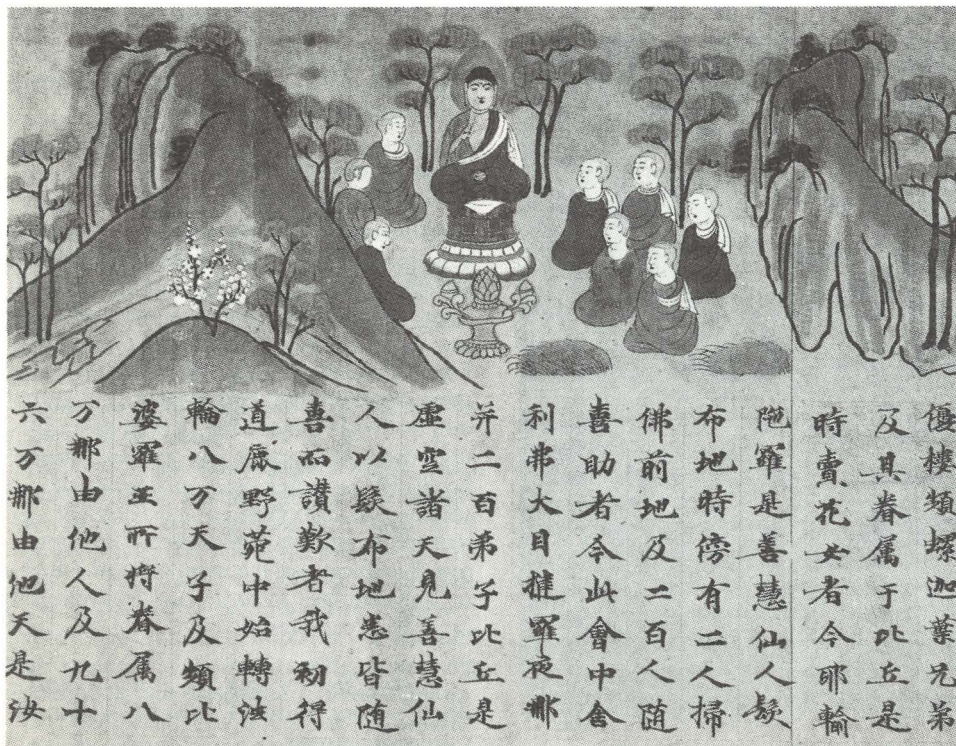 優樓頻螺迦葉兄弟
及其眷属千比丘是
時賣花女者今耶輸
陁羅是善慧仙人髮
布地時傍有二人掃
佛前地及二百人随
喜助者今此會中舍
利弗大目揵羅夜那
并二百弟子比丘是
虚空諸天見善慧仙
人以髮布地悉皆随
喜而讃歎者我初得
道鹿野苑中始轉法
輪八万天子及頻比
婆羅王所将眷属八
万那由他人及九十
六万那由他天是汝